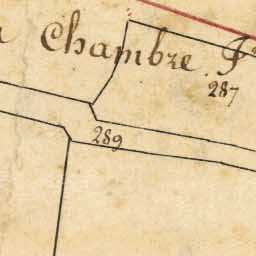 Chambre
287
289